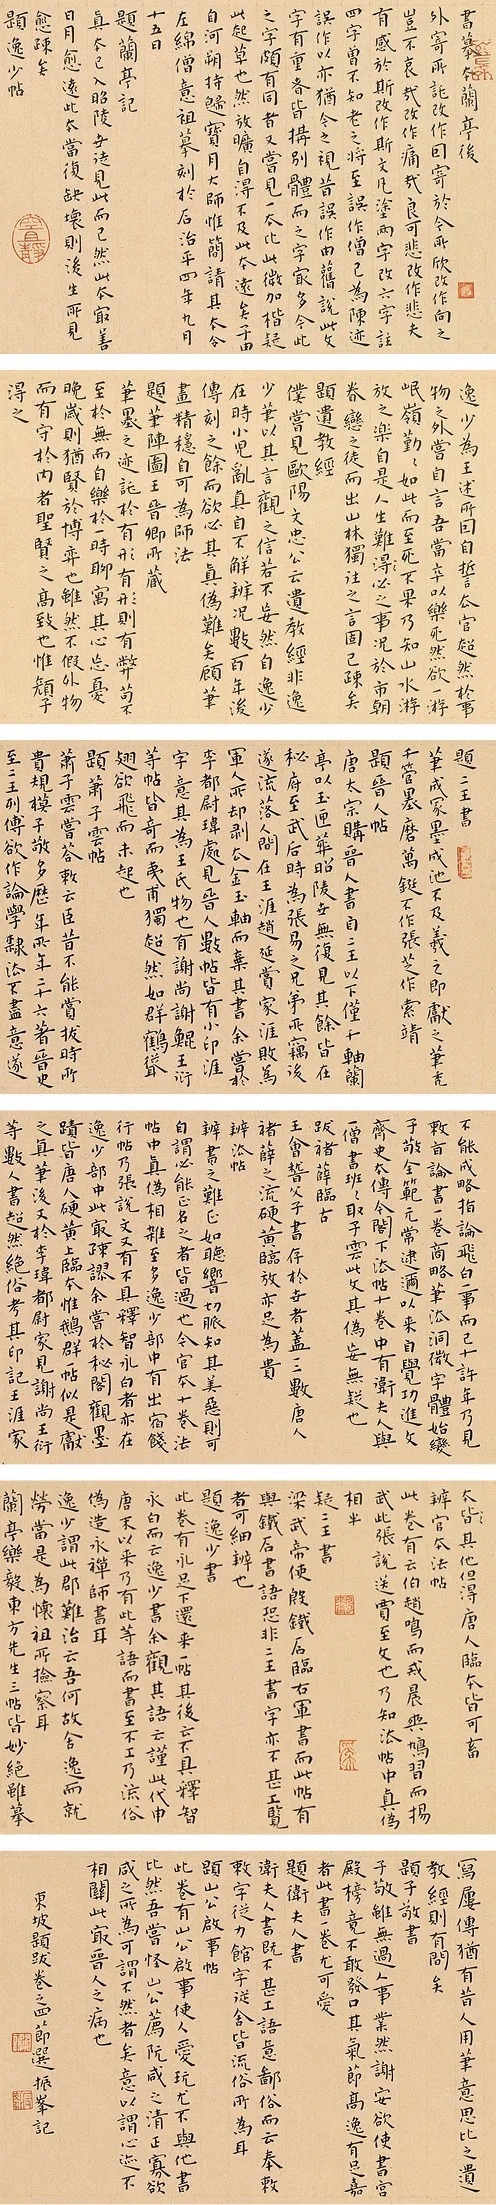 書摹本蘭亭後
外寄所託改作因寄於今所欣改作向之
豈不哀哉改作痛哉良可悲改作悲夫
有感於斯改作斯文凡塗兩字改六字註
四字曾不知老之將至誤作僧已為陳迹
誤作以亦猶今之視昔誤作由舊說此文
字有重者皆搆別體而之字最多今此
之字頗有同者又嘗見一本比此微加楷疑
此起草也然放曠自得不及此本遠矣子由
自河朔持歸寶月大師惟簡請其本令
左綿僧意祖摹刻於石治平四年九月
十五日
題蘭亭記
真本已入昭陵世徒見此而已然此本最善
日月愈遠此本當復缺壞則後生所見
愈疎矣
題逸少帖
逸少為王述所困自誓去官超然於事
物之外嘗自言吾當卒以樂死然欲一遊
岷嶺勤勤如此而至死不果乃知山水游
放之樂自是人生難得必之事況於市朝
眷戀之徒而出山林獨往之言固已疎矣
題遺教經
僕嘗見歐陽文忠公云遺教經非逸
少筆以其言觀之信若不妄然自逸少
在時小兒亂真自不解辨況數百年後
傳刻之餘而欲必其真偽難矣顧筆
畫精穩自可為師法
題筆陣圖王晉卿所藏
筆墨之迹託於有形有形則有弊苟不
至於無而自樂於一時聊寓其心忘憂
晚歲則猶賢於博弈也雖然不假外物
而有守於內者聖賢之高致也惟顏子
得之
題二王書
筆成冢墨成池不及羲之即獻之筆禿
千管墨磨萬鋌不作張芝作索靖
題晉人帖
唐太宗購晉人書自二王以下僅千軸蘭
亭以玉匣葬昭陵世無復見其餘皆在
秘府至武后時為張易之兄弟所竊後
遂流落人間在王涯趙延賞家涯敗為
軍人所劫剥去金玉軸而棄其書余嘗於
李都尉瑋處見晉人數帖皆有小印涯
字意其為王氏物也有謝尚謝鯤王衍
等帖皆奇而夷甫獨超然如群鶴聳
翅欲飛而未起也
題蕭子雲帖
蕭子雲嘗答敕云臣昔不能賞拔時所
貴規模子敬多歷年所年二十六著晉史
至二王列傳欲作論學隸法言不盡意遂
不能成略指論飛白一事而已十許年乃見
敕旨論書一卷商略筆法洞微字體始變
子敬全範元常逮邇以來自覺功進文
齊史本傳今閣下法帖十卷中有衛夫人與
一僧書班班取子雲此文其偽妄無疑也
跋褚薛臨古
王會誓父子書存於世者蓋一二數唐人
褚薛之流硬黃臨放亦足為貴
辨法帖
辨書之難正如聽響切脈知其美惡則可
自謂必能正名之者皆過也今官本十卷法
帖中真偽相雜至多逸少部中有出宿餞
行帖乃張說文又有不具釋智永白者亦在
逸少部中此最疎謬余嘗於秘閣觀墨
蹟皆唐人硬黃上臨本惟鵝群一帖似是獻
之真筆後又於李瑋都尉家見謝尚王衍
等數人書超然絕俗考其印記王涯家
本皆其他但得唐人臨本皆可畜
辨官本法帖
此卷有云伯趙鳴而戒晨爽鳩習而揚
武此張說送賈至文也乃知法帖中真偽
相半
疑二王書
梁武帝使殷鐵石臨右軍書而此帖有
與鐵石書語恐非二王書字亦不甚工覽
者可細辨也
題逸少書
此卷有永足下還來一帖其後云不具釋智
永白而云逸少書余觀其語云謹此代申
唐末以來乃有此等語而書至不工乃流俗
偽造永禪師書耳
逸少謂此郡難治云吾何故舍逸而就
勞當是為懷祖所撿察耳
蘭亭樂毅東方先生三帖皆妙絕雖摹
寫屢傳猶有昔人用筆意思比之遺
教經則有間矣
題子敬書
子敬雖無過人事業然謝安欲使書宮
殿榜竟不敢發口其氣節高逸有足嘉
者此書一卷尤可愛
題衛夫人書
衛夫人書既不甚工語意鄙俗而云奉敕
敕字從力館字從舍皆流俗所為耳
題山公啟事帖
此卷有山公啟事使人愛玩尤不與他書
比然吾嘗怪山公薦阮咸之清正寡欲
咸之所為可謂不然者矣意以謂心迹不
相關此最晉人之病也
東坡題跋卷之四節選振峯記